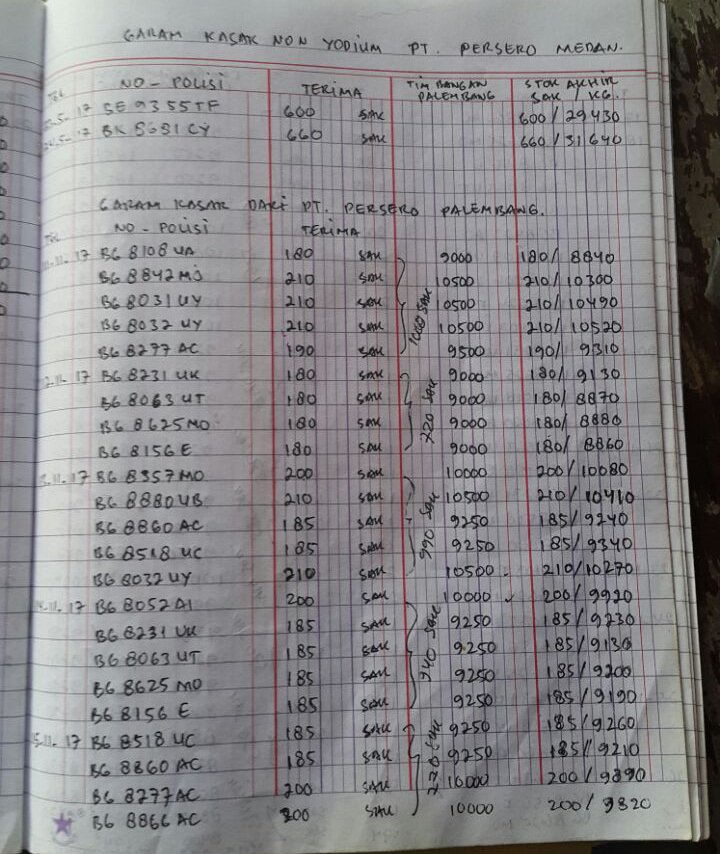 GARAM KASAK NON YODIUM PT. PERSERO MEDAN.
NO-POLISI TERIMA TIMBANGAN PALEMBANG STOK AKHIR SAK / KG.
17 SE 9355 TF 600 SAK 600 / 29430
17 BK 5631 CY 660 SAK 660 / 31640
GARAM KASAR DARI PT. PERSERO PALEMBANG.
NO-POLISI TERIMA
11. 17 BG 8108 UA 180 SAK 9000 180 / 8840
BG 8842 MO 210 SAK 10500 210 / 10300
BG 8031 UY 210 SAK 10500 210 / 10490
BG 8032 UY 210 SAK 10500 210 / 10520
BG 8277 AC 190 SAK 9500 190 / 9310
17 BG 8231 UK 180 SAK 9000 180 / 9130
BG 8063 UT 180 SAK 720 SAK 9000 180 / 8870
BG 8625 MO 180 SAK 9000 180 / 8880
BG 8156 E 180 SAK 9000 180 / 8860
11. 17 BG 8357 MO 200 SAK 10000 200 / 10080
BG 8880 UB 210 SAK 10500 210 / 10410
BG 8860 AC 185 SAK 990 SAK 9250 185 / 9240
BG 8518 UC 185 SAK 9250 185 / 9340
BG 8032 UY 210 SAK 10500 210 / 10270
11. 17 BG 8052 AI 200 SAK 10000 200 / 9920
BG 8231 UK 185 SAK 9250 185 / 9230
BG 8063 UT 185 SAK 740 SAK 9250 185 / 9130
BG 8625 MO 185 SAK 9250 185 / 9200
BG 8156 E 185 SAK 9250 185 / 9190
11. 17 BG 8518 UC 185 SAK 9250 185 / 9260
BG 8860 AC 185 SAK 770 SAK 9250 185 / 9210
BG 8277 AC 200 SAK 10000 200 / 9890
BG 8866 AC 200 SAK 10000 200 / 9820